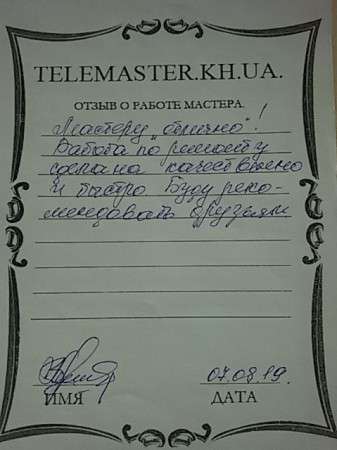 TELEMASTER.KH.UA.
ОТЗЫВ О РАБОТЕ МАСТЕРА.
Мастеру „отлично"!
Работа по ремонту
сделана качественно
и быстро. Буду реко-
мендовать друзьям
07.08.19
ИМЯ ДАТА